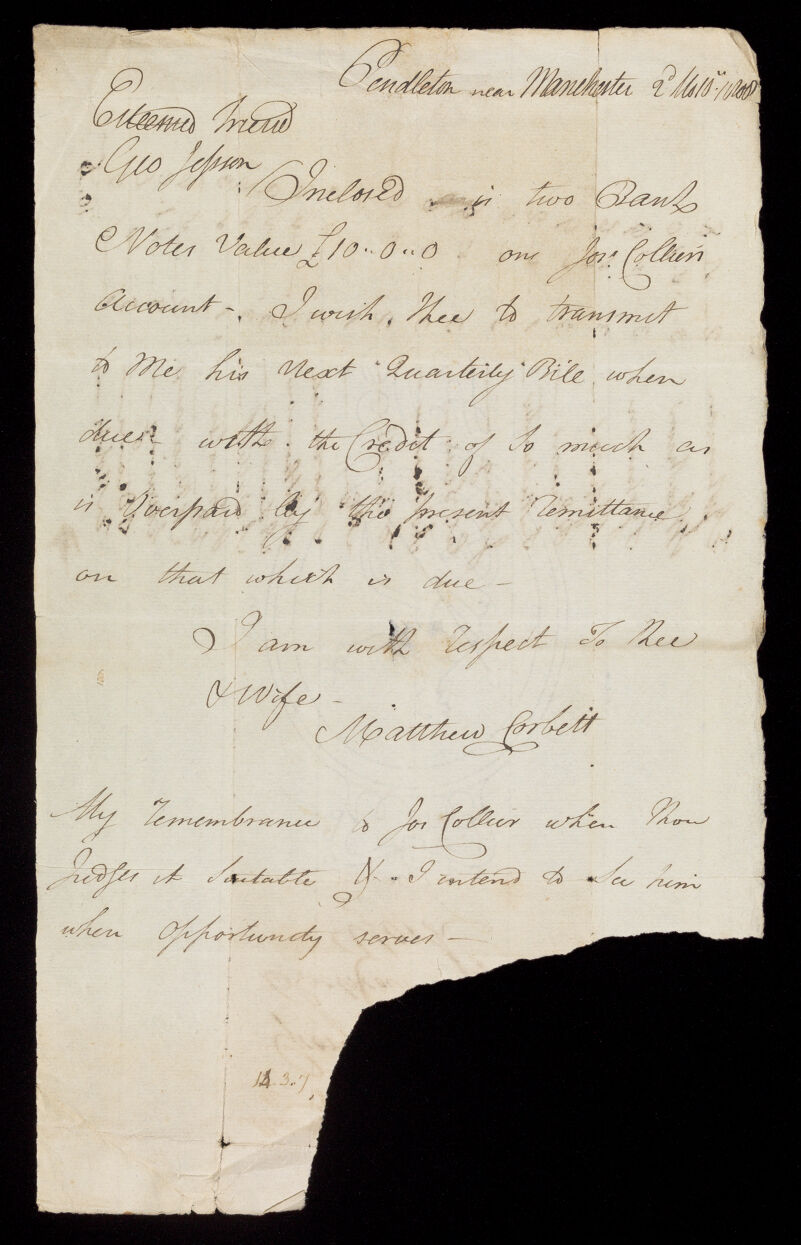 Pendleton near Manchester 2d Mo 10th 1800
Esteemed Friend
Geo Jepson
Inclosed is two Bank
Notes Value £10..0..0 on Jos. Collier's
Account -. I wish thee to transmit
to Me his Next Quarterly Bill when
due - with the Credit of So much as
is Overpaid by the present remittance
on that which is due -
I am with respect To thee
& Wife -
Matthew Corbett
My remembrance to Jos Collier when thou
Judges it Suitable & I intend to See him
when opportunity serves -
3..7